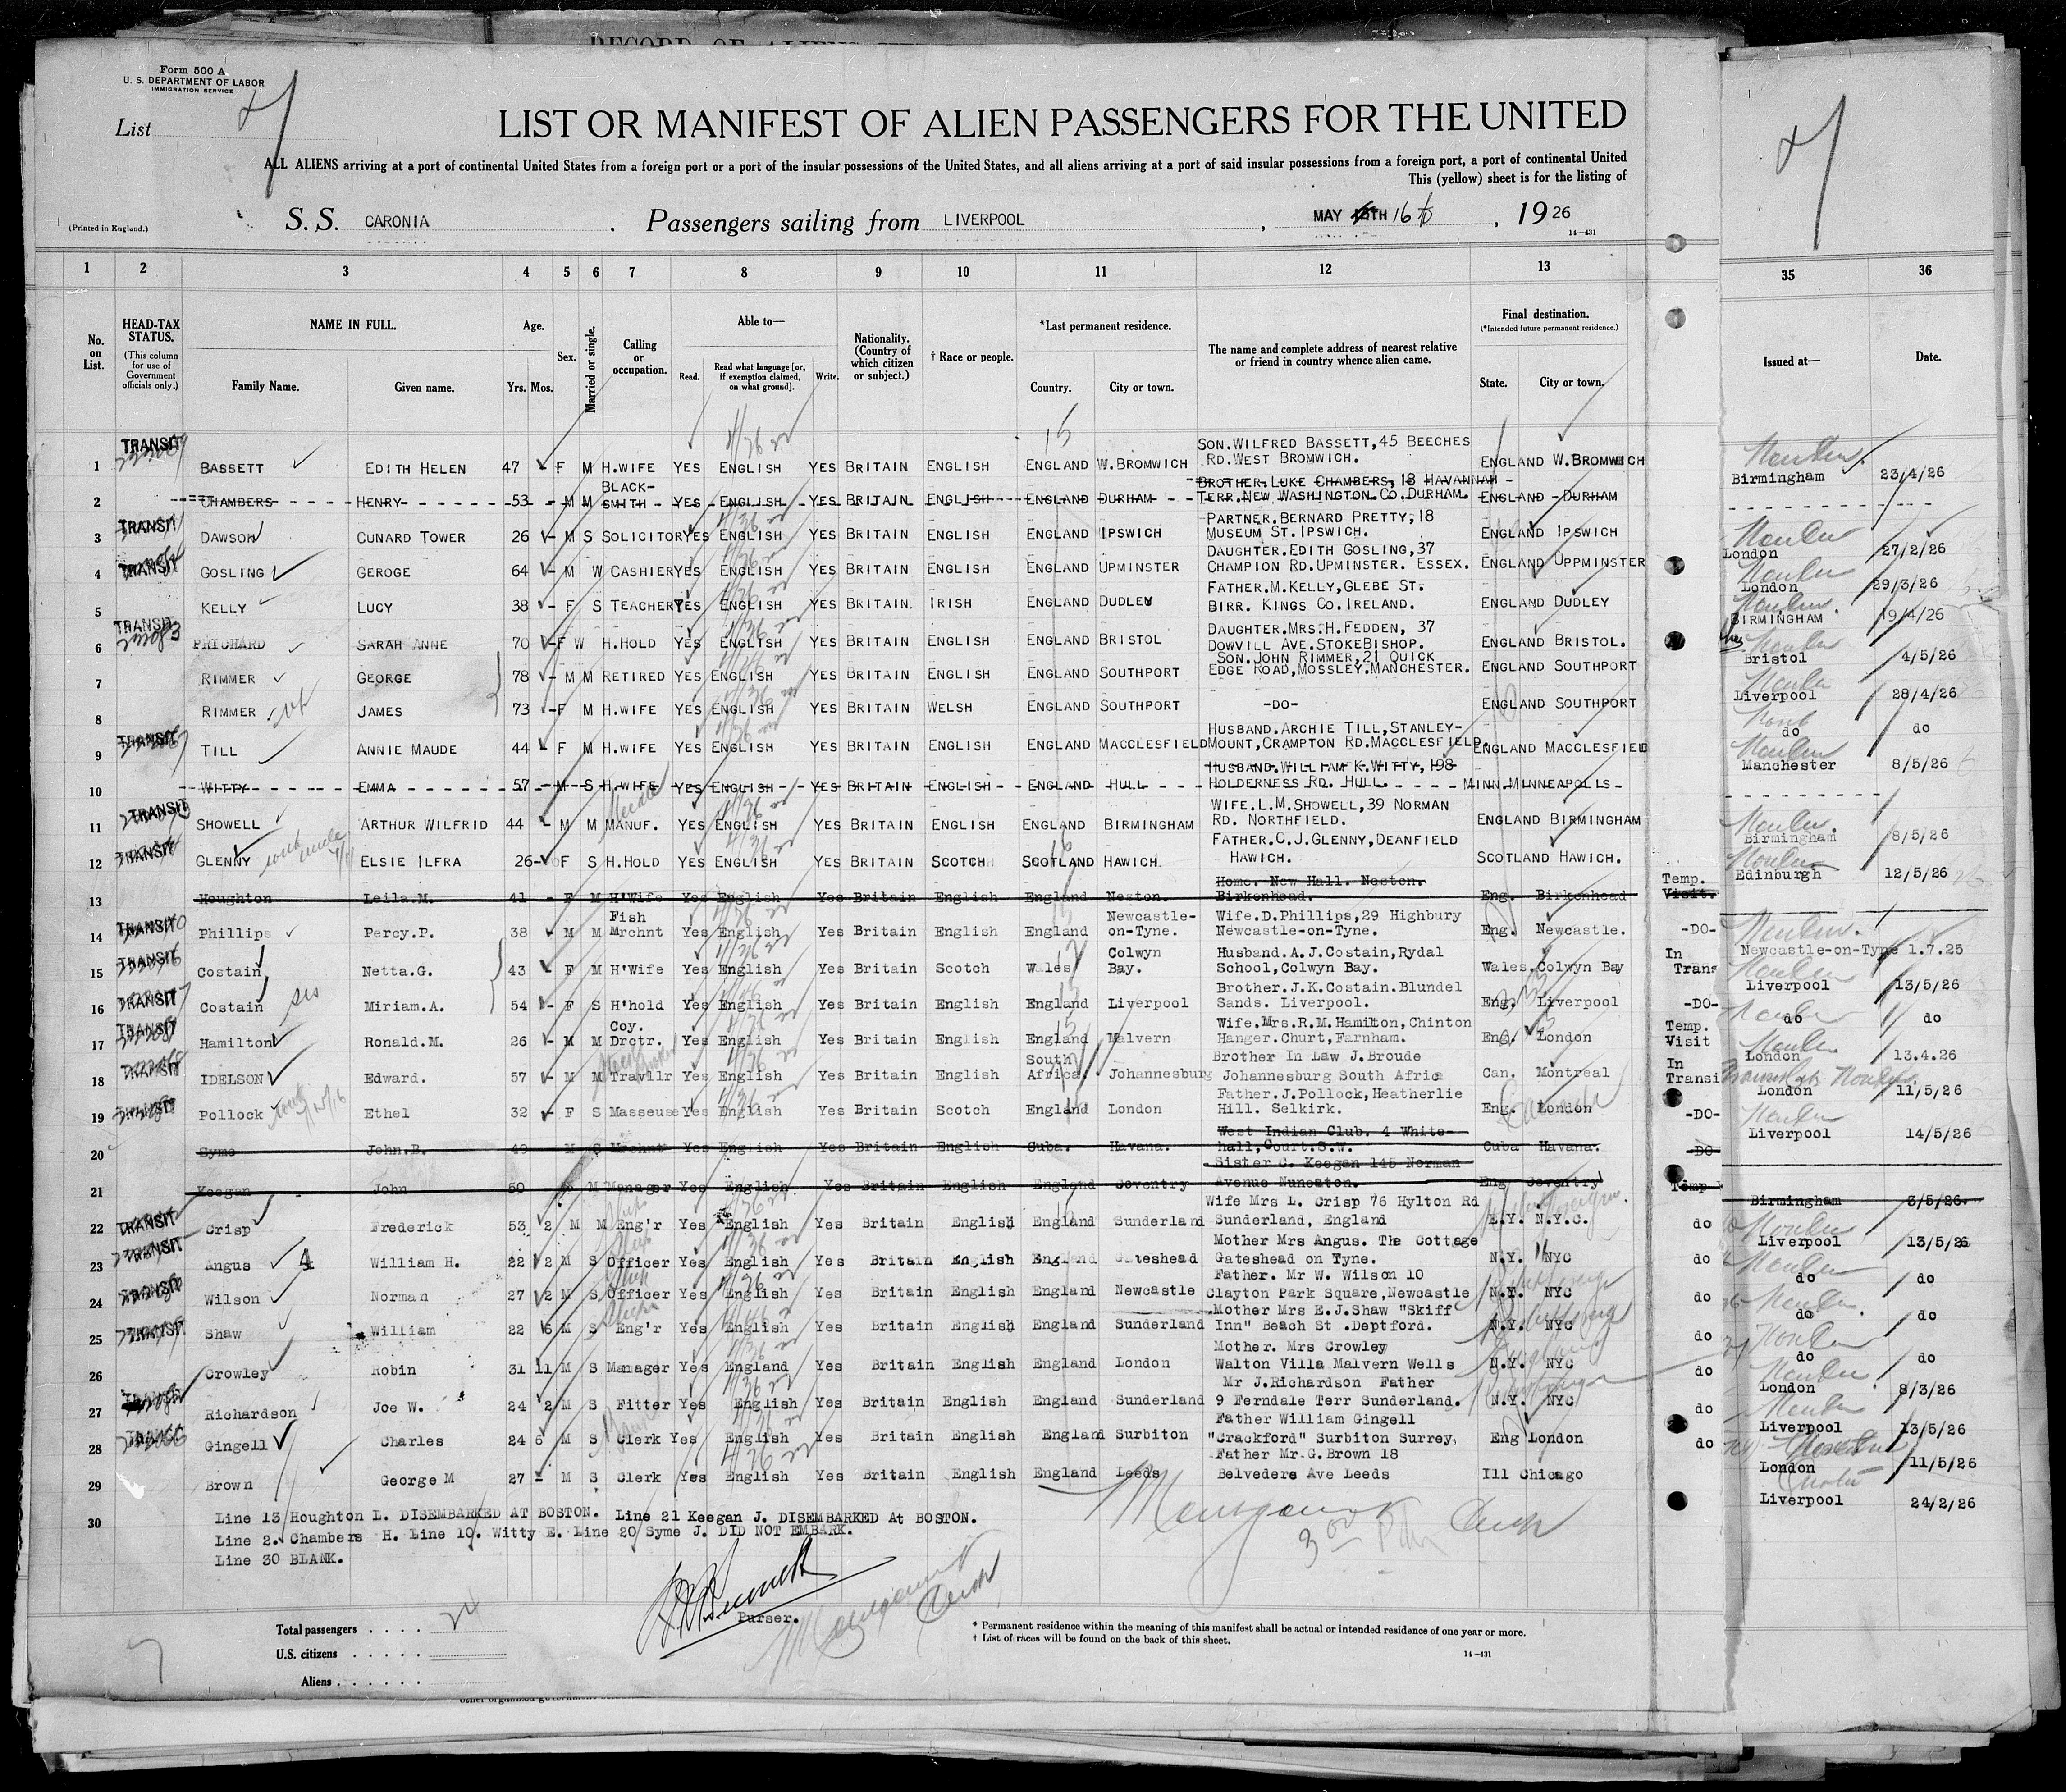 RECORD OF ALIENS
Form 500 A
U. S. DEPARTMENT OF LABOR
IMMIGRATION SERVICE
List
LIST OR MANIFEST OF ALIEN PASSENGERS FOR THE UNITED
ALL ALIENS arriving at a port of continental United States from a foreign port or a port of the insular possessions of the United States, and all aliens arriving at a port of said insular possessions from a foreign port, a port of continental United
This (yellow) sheet is for the listing of
(Printed in England.)
S. S. CARONIA . Passengers sailing from LIVERPOOL , MAY 15TH 16th , 1926
14—431
1 2 3 4 5 6 7 8 9 10 11 12 13 35 36
No. on List.
HEAD-TAX STATUS.
(This column for use of Government officials only.)
NAME IN FULL.
Family Name. Given name.
Age.
Yrs. Mos.
Sex.
Married or single.
Calling or occupation.
Able to—
Read. Read what language [or, if exemption claimed, on what ground]. Write.
Nationality. (Country of which citizen or subject.)
† Race or people.
*Last permanent residence.
Country. City or town.
The name and complete address of nearest relative or friend in country whence alien came.
Final destination.
(*Intended future permanent residence.)
State. City or town.
Issued at— Date.
1 TRANSIT BASSETT EDITH HELEN 47 F M H.WIFE YES ENGLISH YES BRITAIN ENGLISH ENGLAND W.BROMWICH SON.WILFRED BASSETT,45 BEECHES RD.WEST BROMWICH. ENGLAND W.BROMWICH Birmingham 23/4/26
2 CHAMBERS HENRY 53 M M BLACK-SMITH YES ENGLISH YES BRITAIN ENGLISH ENGLAND DURHAM BROTHER.LUKE CHAMBERS, 18 HAVANNAH TERR.NEW WASHINGTON.CO.DURHAM. ENGLAND DURHAM
3 TRANSIT DAWSON CUNARD TOWER 26 - M S SOLICITOR YES ENGLISH YES BRITAIN ENGLISH ENGLAND IPSWICH PARTNER.BERNARD PRETTY,18 MUSEUM ST.IPSWICH. ENGLAND IPSWICH London 27/2/26
4 TRANSIT GOSLING GEROGE 64 - M W CASHIER YES ENGLISH YES BRITAIN ENGLISH ENGLAND UPMINSTER DAUGHTER.EDITH GOSLING,37 CHAMPION RD.UPMINSTER. ESSEX. ENGLAND UPPMINSTER London 29/3/26
5 KELLY LUCY 38 - F S TEACHER YES ENGLISH YES BRITAIN. IRISH ENGLAND DUDLEY FATHER.M.KELLY,GLEBE ST. BIRR. KINGS CO.IRELAND. ENGLAND DUDLEY BIRMINGHAM 19/4/26
6 TRANSIT PRICHARD SARAH ANNE 70 - F W H.HOLD YES ENGLISH YES BRITAIN ENGLISH ENGLAND BRISTOL DAUGHTER.MRS.H.FEDDEN, 37 DOWVILL AVE.STOKEBISHOP. ENGLAND BRISTOL. Bristol 4/5/26
7 RIMMER GEORGE 78 - M M RETIRED YES ENGLISH YES BRITAIN ENGLISH ENGLAND SOUTHPORT SON.JOHN RIMMER,21 QUICK EDGE ROAD,MOSSLEY.MANCHESTER. ENGLAND SOUTHPORT Liverpool 28/4/26
8 RIMMER JAMES 73 - F M H.WIFE YES ENGLISH YES BRITAIN WELSH ENGLAND SOUTHPORT -DO- ENGLAND SOUTHPORT do do
9 TRANSIT TILL ANNIE MAUDE 44 - F M H.WIFE YES ENGLISH YES BRITAIN ENGLISH ENGLAND MACCLESFIELD HUSBAND.ARCHIE TILL,STANLEY-MOUNT,CRAMPTON RD.MACCLESFIELD. ENGLAND MACCLESFIELD Manchester 8/5/26
10 WITTY EMMA 57 - M S H.WIFE YES ENGLISH YES BRITAIN ENGLISH ENGLAND HULL HUSBAND.WILLIAM K.WITTY, 198 HOLDERNESS RD. HULL. MINN.MINNEAPOLLS
11 TRANSIT SHOWELL ARTHUR WILFRID 44 - M M MANUF. YES ENGLISH YES BRITAIN ENGLISH ENGLAND BIRMINGHAM WIFE.L.M.SHOWELL,39 NORMAN RD. NORTHFIELD. ENGLAND BIRMINGHAM Birmingham 8/5/26
12 TRANSIT GLENNY ELSIE ILFRA 26 - F S H.HOLD YES ENGLISH YES BRITAIN SCOTCH SCOTLAND HAWICH FATHER.C.J.GLENNY,DEANFIELD HAWICH. SCOTLAND HAWICH. Edinburgh 12/5/26
13 Houghton Leila.M. 41 - F M H'Wife Yes English Yes Britain English England Neston. Home. New Hall. Neston. Birkenhead. Eng. Birkenhead Temp. Visit.
14 TRANSIT Phillips Percy.P. 38 - M M Fish Mrchnt Yes English Yes Britain English England Newcastle-on-Tyne. Wife.D.Phillips,29 Highbury Newcastle-on-Tyne. Eng. Newcastle. -DO- Newcastle-on-Tyne 1.7.25
15 TRANSIT Costain Netta.G. 43 - F M H'Wife Yes English Yes Britain Scotch Wales Colwyn Bay. Husband.A.J.Costain,Rydal School,Colwyn Bay. Wales.Colwyn Bay In Trans Liverpool 13/5/26
16 TRANSIT Costain sis Miriam.A. 54 - F S H'hold Yes English Yes Britain English England Liverpool Brother.J.K.Costain.Blundel Sands. Liverpool. Eng. Liverpool -DO- do do
17 TRANSIT Hamilton Ronald.M. 26 - M M Coy. Drctr. Yes English Yes Britain English England Malvern Wife.Mrs.R.M.Hamilton,Chinton Hanger.Churt,Farnham. Eng. London Temp. Visit London 13.4.26
18 TRANSIT IDELSON Edward. 57 - M M Travllr Yes English Yes Britain English South Africa Johannesburg Brother In Law J.Broude Johannesburg South Africa Can. Montreal In Transi London 11/5/26
19 TRANSIT Pollock Ethel 32 - F S Masseuse Yes English Yes Britain Scotch England London Father.J.Pollock,Heatherlie Hill. Selkirk. Eng. London -DO- Liverpool 14/5/26
20 Syme John.B. 49 M S Mrchnt Yes English Yes Britain English Cuba. Havana. West Indian Club. 4 White-hall,Court.S.W. Cuba Havana. DO
21 Keegan John 50 M Manager Yes English Yes Britain English England Coventry Sister C. Keegan 145 Norman Avenue Nuneaton. Eng Coventry Temp Birmingham 3/5/26.
22 TRANSIT Crisp Frederick 53 2 M M Eng'r Yes English Yes Britain English England Sunderland Wife Mrs L. Crisp 76 Hylton Rd Sunderland, England N.Y. N.Y.C. do Liverpool 13/5/26
23 TRANSIT Angus 4 William H. 22 2 M S Officer Yes English Yes Britain English England Gateshead Mother Mrs Angus. The Cottage Gateshead on Tyne. N.Y. NYC do do do
24 TRANSIT Wilson Norman 27 2 M S Officer Yes English Yes Britain English England Newcastle Father. Mr W. Wilson 10 Clayton Park Square,Newcastle N.Y. NYC do do do
25 TRANSIT Shaw William 22 6 M S Eng'r Yes English Yes Britain English England Sunderland Mother Mrs E.J.Shaw "Skiff Inn" Beach St .Deptford. N.Y. NYC do do do
26 Crowley Robin 31 11 M S Manager Yes England Yes Britain English England London Mother. Mrs Crowley Walton Villa Malvern Wells N.Y. NYC do London 8/3/26
27 Richardson Joe W. 24 2 M S Fitter Yes English Yes Britain English England Sunderland Mr J.Richardson Father 9 Ferndale Terr Sunderland. N.Y. NYC do Liverpool 13/5/26
28 TRANSIT Gingell Charles 24 6 M S Clerk Yes English Yes Britain English England Surbiton Father William Gingell "Crackford" Surbiton Surrey, Eng London do London 11/5/26
29 Brown George M 27 - M S Clerk Yes English Yes Britain English England Leeds Father Mr.G.Brown 18 Belvedere Ave Leeds Ill Chicago Liverpool 24/2/26
30
Line 13 Houghton L. DISEMBARKED AT BOSTON. Line 21 Keegan J. DISEMBARKED At BOSTON.
Line 2. Chambers H. Line 10. Witty E. Line 20 Syme J. DID NOT EMBARK.
Line 30 BLANK.
3 00 P.M.
Purser.
Total passengers . . . . 24
U.S. citizens . . . . .
Aliens . . . . . .
* Permanent residence within the meaning of this manifest shall be actual or intended residence of one year or more.
† List of races will be found on the back of this sheet.
14—431